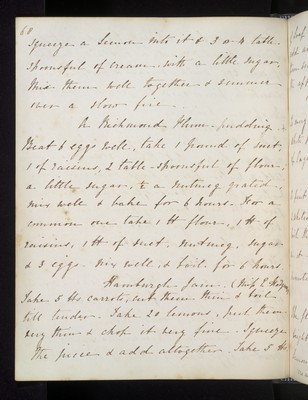 60
squeeze a Lemon into it & 3 or 4 table
spoonsful of cream with a little sugar
Mix them well together & simmer
over a slow fire.
A Richmond Plum-pudding
Beat 6 eggs well, take 1 pound of suet,
1 of raisins, 2 table-spoonsful of flour
a little sugar, & a nutmeg grated.
mix well & bake for 6 hours. For a
common one take 1 ℔ flour, 1 ℔ of
raisins, 1 ℔ of suet, nutmeg, sugar
& 3 eggs. mix well & boil for 6 hours.
Hamburgh Jam. (
Take 5 ℔s carrots, cut them thin & boil
till tender. Take 20 lemons, peel them
very thin & chop it very fine. Squeeze
the juice & add altogether. Take 5 ℔s